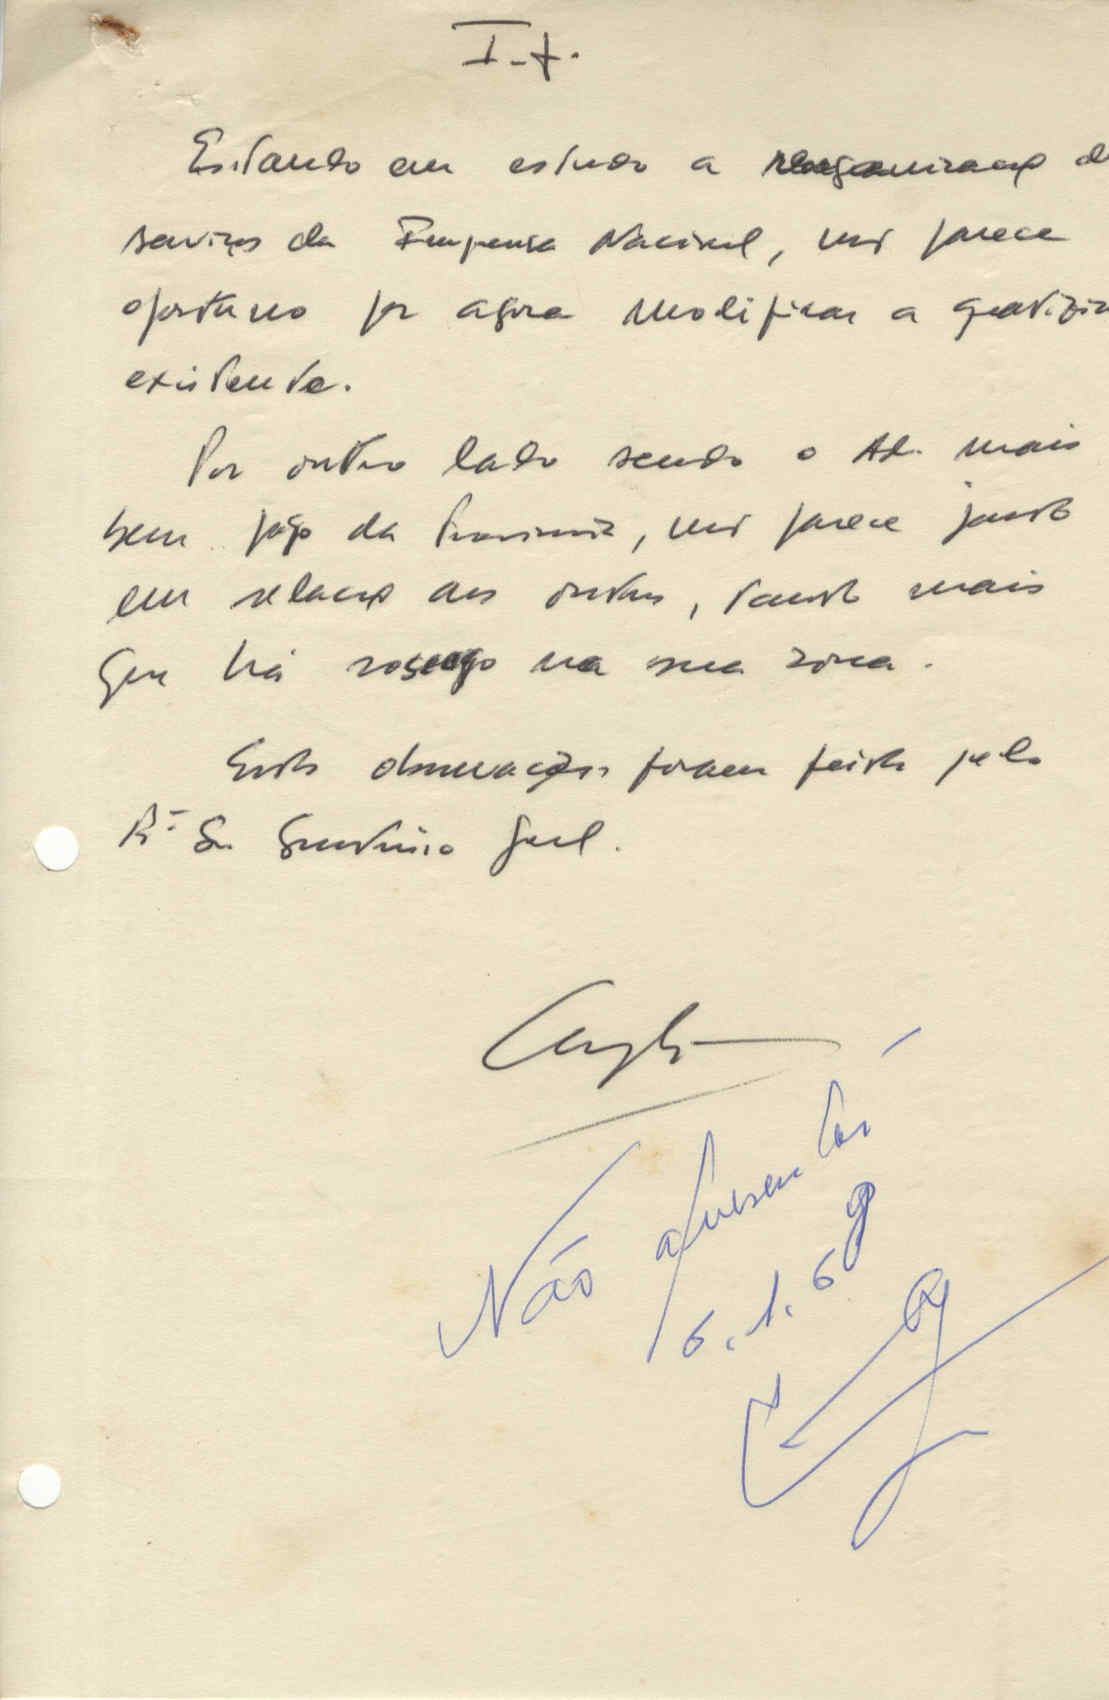 I-f.
Estando em estudo a reorganização d
serviços da Imprensa Nacional, não parece
oportuno por agora modificar a gratifica
existente.
Por outro lado sendo o Ad. mais
bem pago da Província, não parece justo
em relação aos outros, tanto mais
que há sossego na sua zona.
Estas observações foram feitas pelo
Sr. Secretário Geral.
Não apresentar
6.1.69